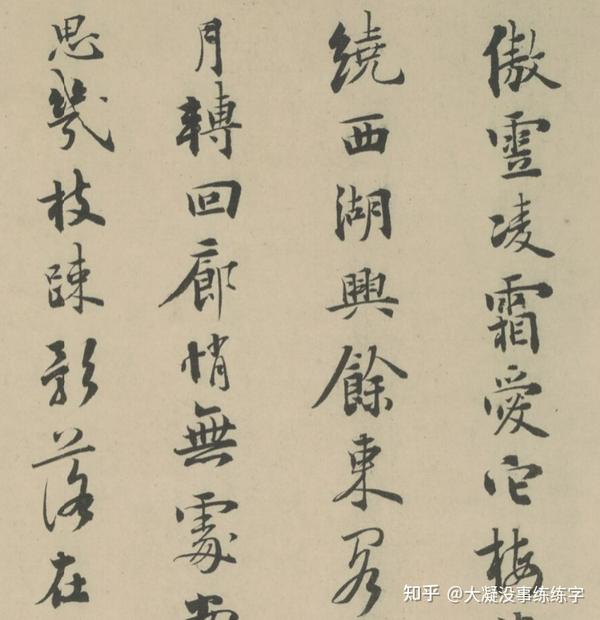 傲雪凌霜愛它梅
繞西湖興餘東閣
月轉回廊悄無處
思幾枝踈影落在
知乎 @大凝没事练练字